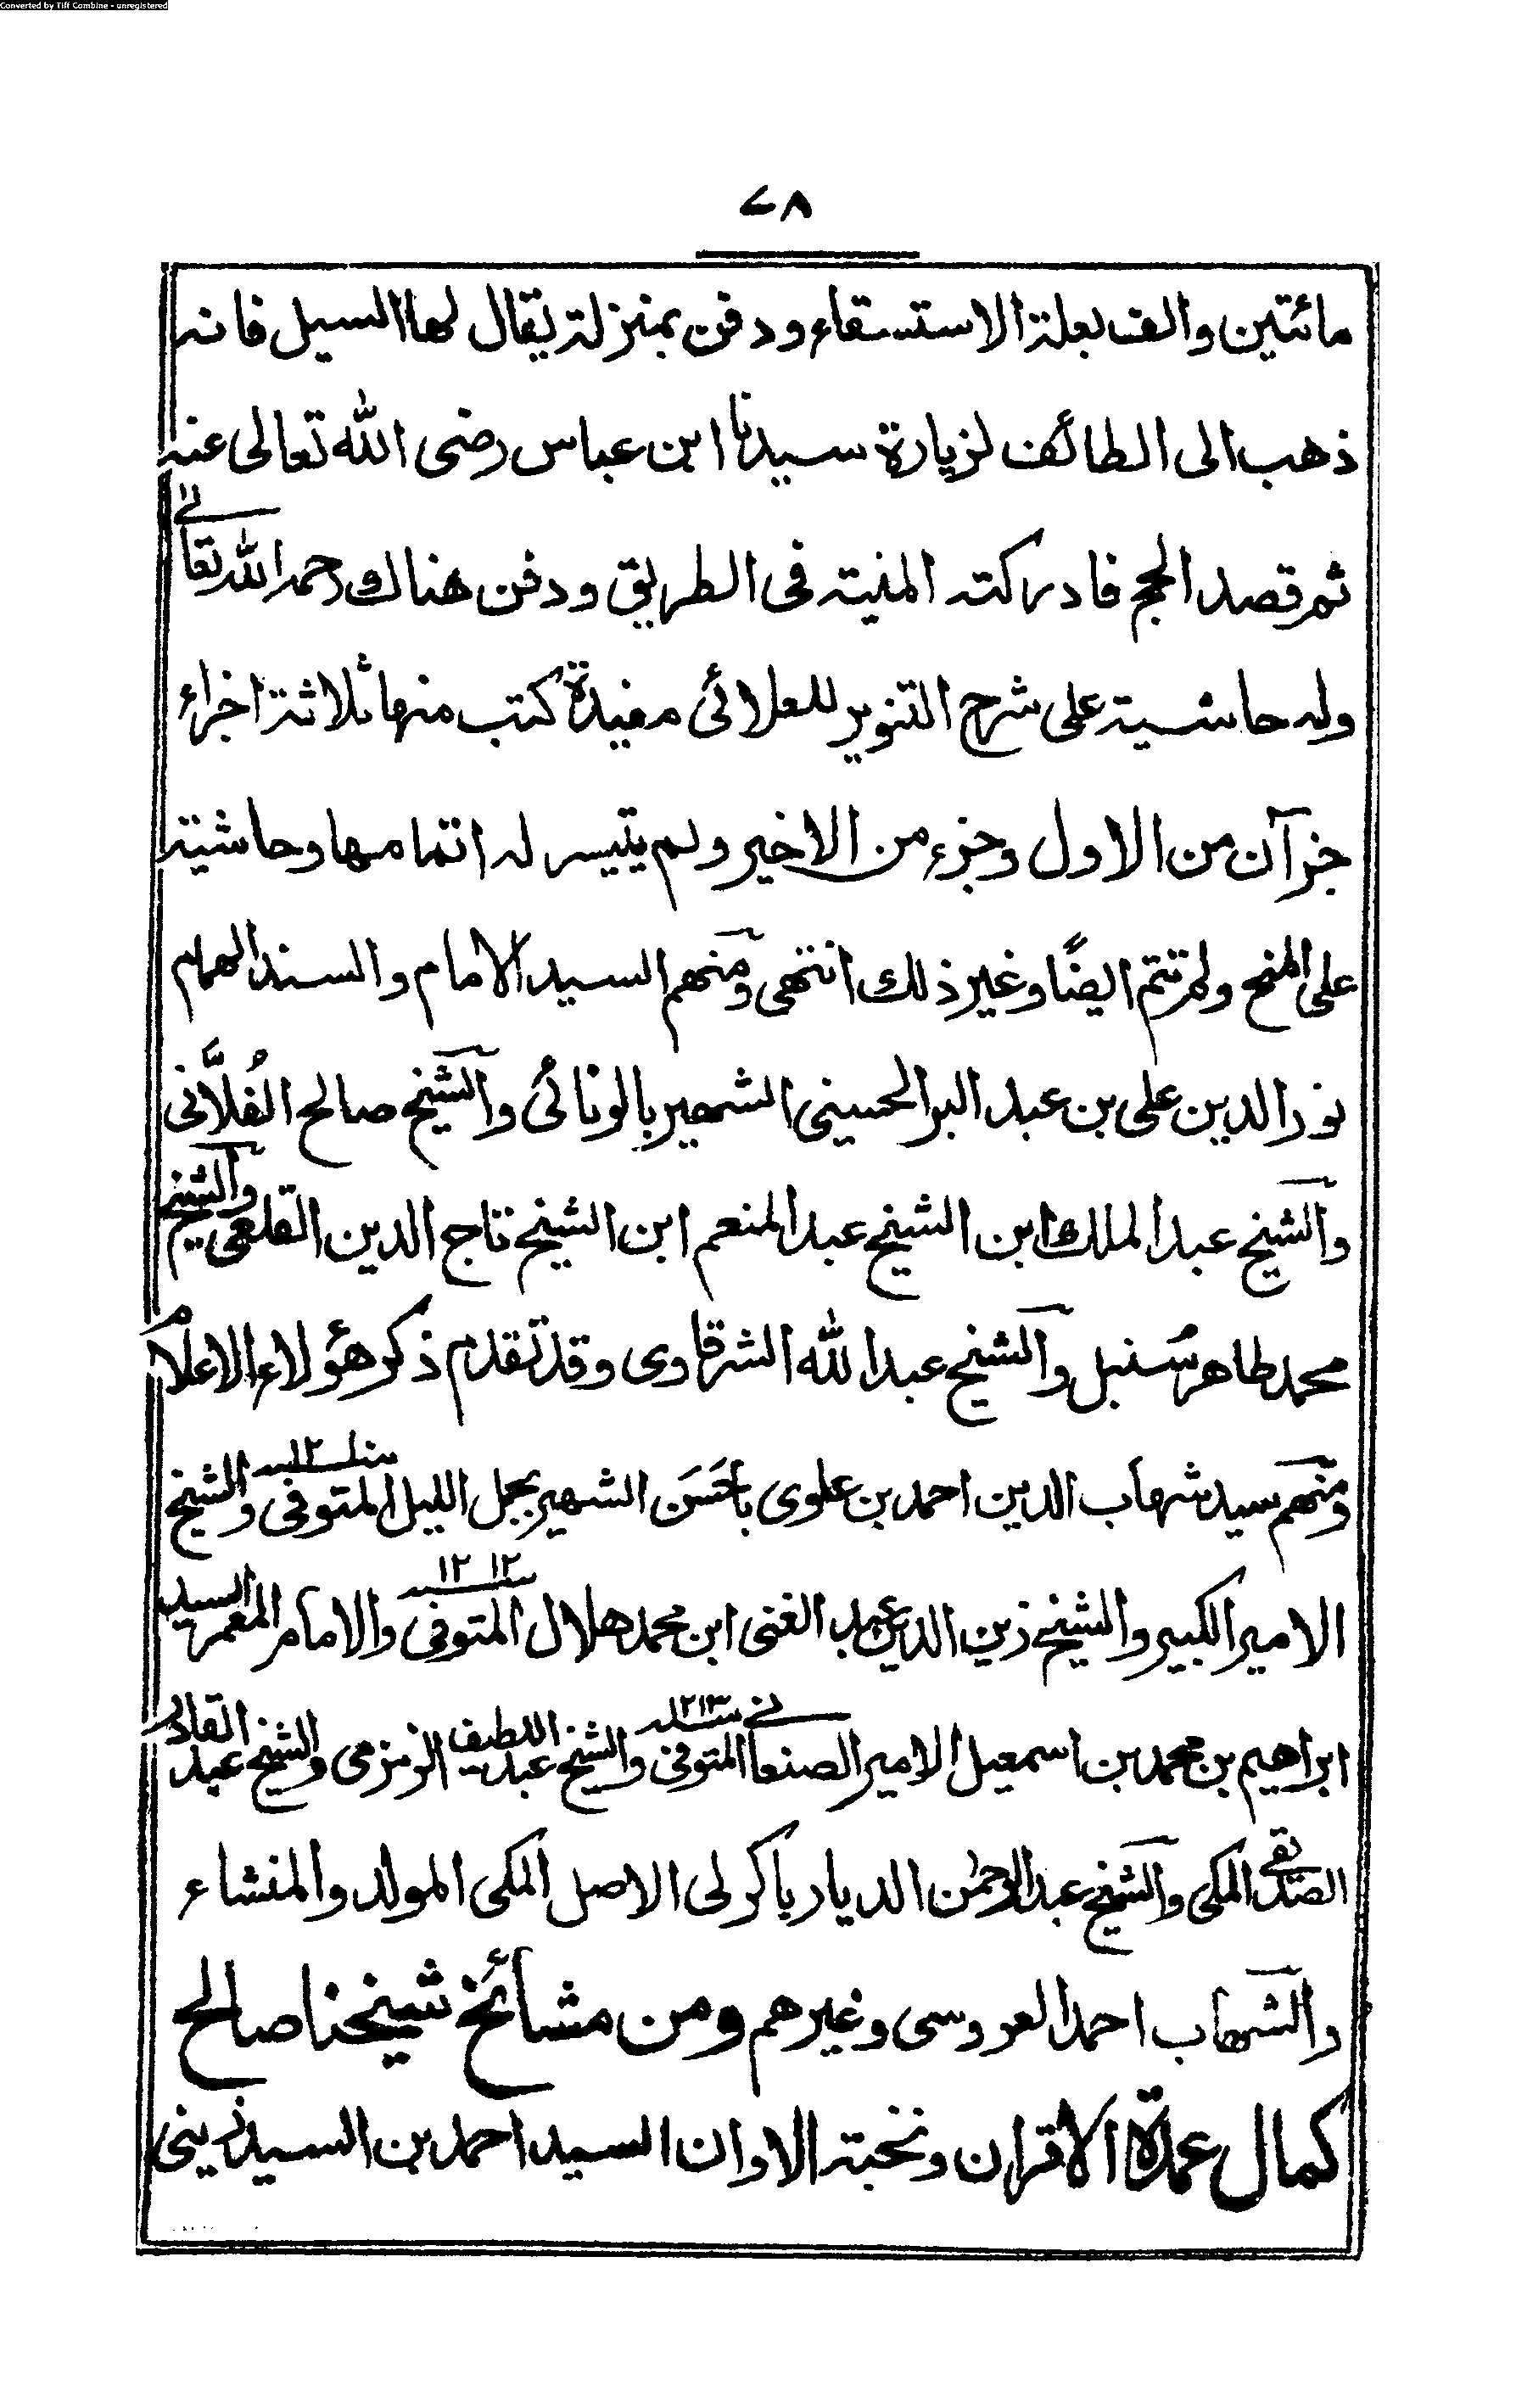 Converted by Tiff Combine - unregistered
٧٨
مائتين والف بعلة الاستسقاء ودفن بمنزلة يقال لها السيل فانه
ذهب الى الطائف لزيارة سيدنا ابن عباس رضى الله تعالى عنه
ثم قصد الحج فادركته المنية فى الطريق ودفن هناك رحمه الله تعالى
وله حاشية على شرح التنوير للعلائى مفيدة كتب منها ثلاثة اجزاء
جزآن من الاول وجزء من الاخير ولم يتيسر له اتمامها وحاشية
على المنح ولم تتم ايضًا وغير ذلك انتهى ومنهم السيد الامام والسند الهمام
نور الدين على بن عبد البر الحسينى الشهير بالونائى والشيخ صالح الفُلَّانى
والشيخ عبد الملك ابن الشيخ عبد المنعم ابن الشيخ تاج الدين القلعى والشيخ
محمد طاهر سُنبل والشيخ عبد الله الشرقاوى وقد تقدم ذكر هؤلاء الاعلام
ومنهم سيد شهاب الدين احمد بن علوى باحَسَن الشهير بجمل الليل المتوفى والشيخ
الامير الكبير والشيخ زين الدين عبد الغنى ابن محمد هلال المتوفى ١٢١٢ والامام المعمر السيد
ابراهيم بن محمد بن اسمعيل الامير الصنعانى المتوفى سنة ١٢١٣ والشيخ عبد اللطيف الزمزمى والشيخ عبد القادر
الصديقى المكى والشيخ عبد الرحمٰن الديار باكرلى الاصل المكى المولد والمنشاء
والشهاب احمد العروسى وغيرهم ومن مشائخ شيخنا صالح
كمال عمدة الاقران ونخبة الاوان السيد احمد بن السيد زينى